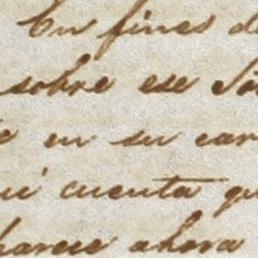 En fines d
sobre ese
e en su car
cuenta qu
parece ahora